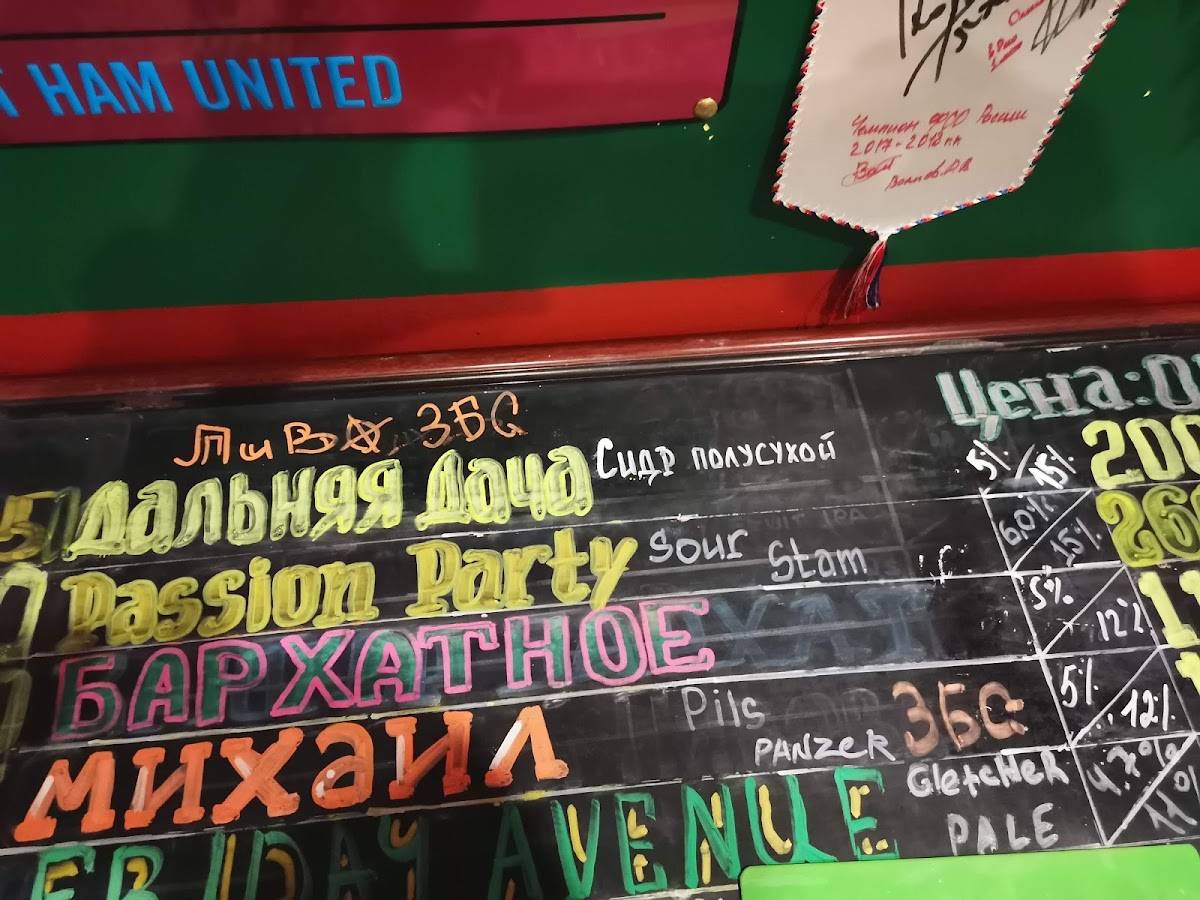 HAM UNITED
Чемпион России
2017-2018 гг
Пива, ЗБС
Цена:
Дальняя Дача Сидр полусухой 5% 15% 200
Passion Party Sour Stam 6,0% 15% 26
БАРХАТНОЕ 5% 12% 1
МИХАИЛ Pils PANZER ЗБС 5% 12%
FRIDAY AVENUE Gletcher PALE 4.7% 11%